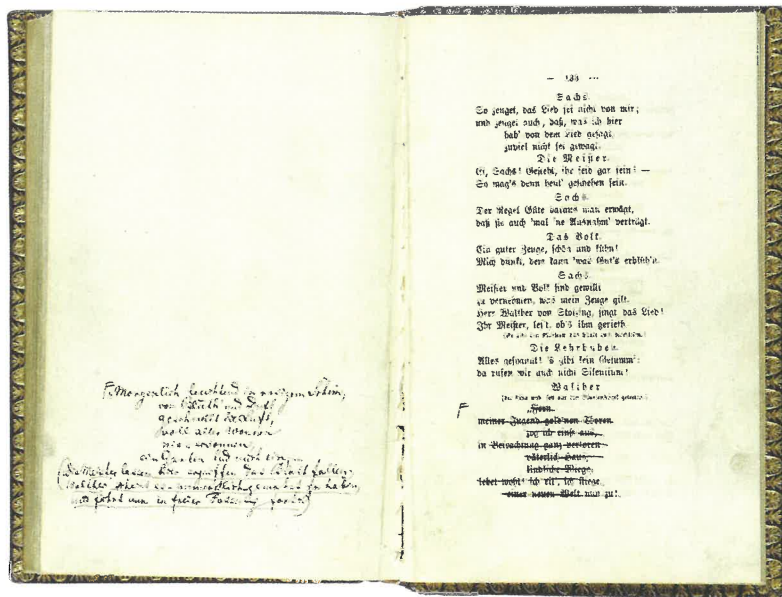 F. Morgenlich leuchtend in rosigem Schein,
von Blüth' und Duft
geschwellt die Luft,
voll aller Wonnen
nie ersonnen,
ein Garten lud mich ein –
(Die Meister lassen hier ergriffen das Blatt fallen;
Walther scheint es unmerklich gewahrt zu haben,
und fährt nun in freier Fassung fort.)
— 133 —
Sachs.
So zeuget, das Lied sei nicht von mir;
und zeuget auch, daß, was ich hier
hab' von dem Lied gesagt,
zuviel nicht sei gewagt.
Die Meister.
Ei, Sachs! Gesteht, ihr seid gar fein! —
So mag's denn heut' geschehen sein.
Sachs.
Der Regel Güte daraus man erwägt,
daß sie auch 'mal 'ne Ausnahm' verträgt.
Das Volk.
Ein guter Zeuge, schön und kühn!
Mich dünkt, dem kann 'was Gut's erblüh'n.
Sachs.
Meister und Volk sind gewillt
zu vernehmen, was mein Zeuge gilt.
Herr Walther von Stolzing, singt das Lied!
Ihr Meister, les't, ob's ihm gerieth.
Die Lehrbuben.
Alles gespannt! 's gibt kein Gesumm';
da rufen wir auch nicht Silentium!
Walther
F
„Fern
meiner Jugend gold'nen Thoren
zog ich einst aus,
in Betrachtung ganz verloren:
väterlich Haus,
kindliche Wiege,
lebet wohl! ich eil', ich fliege
einer neuen Welt nun zu!